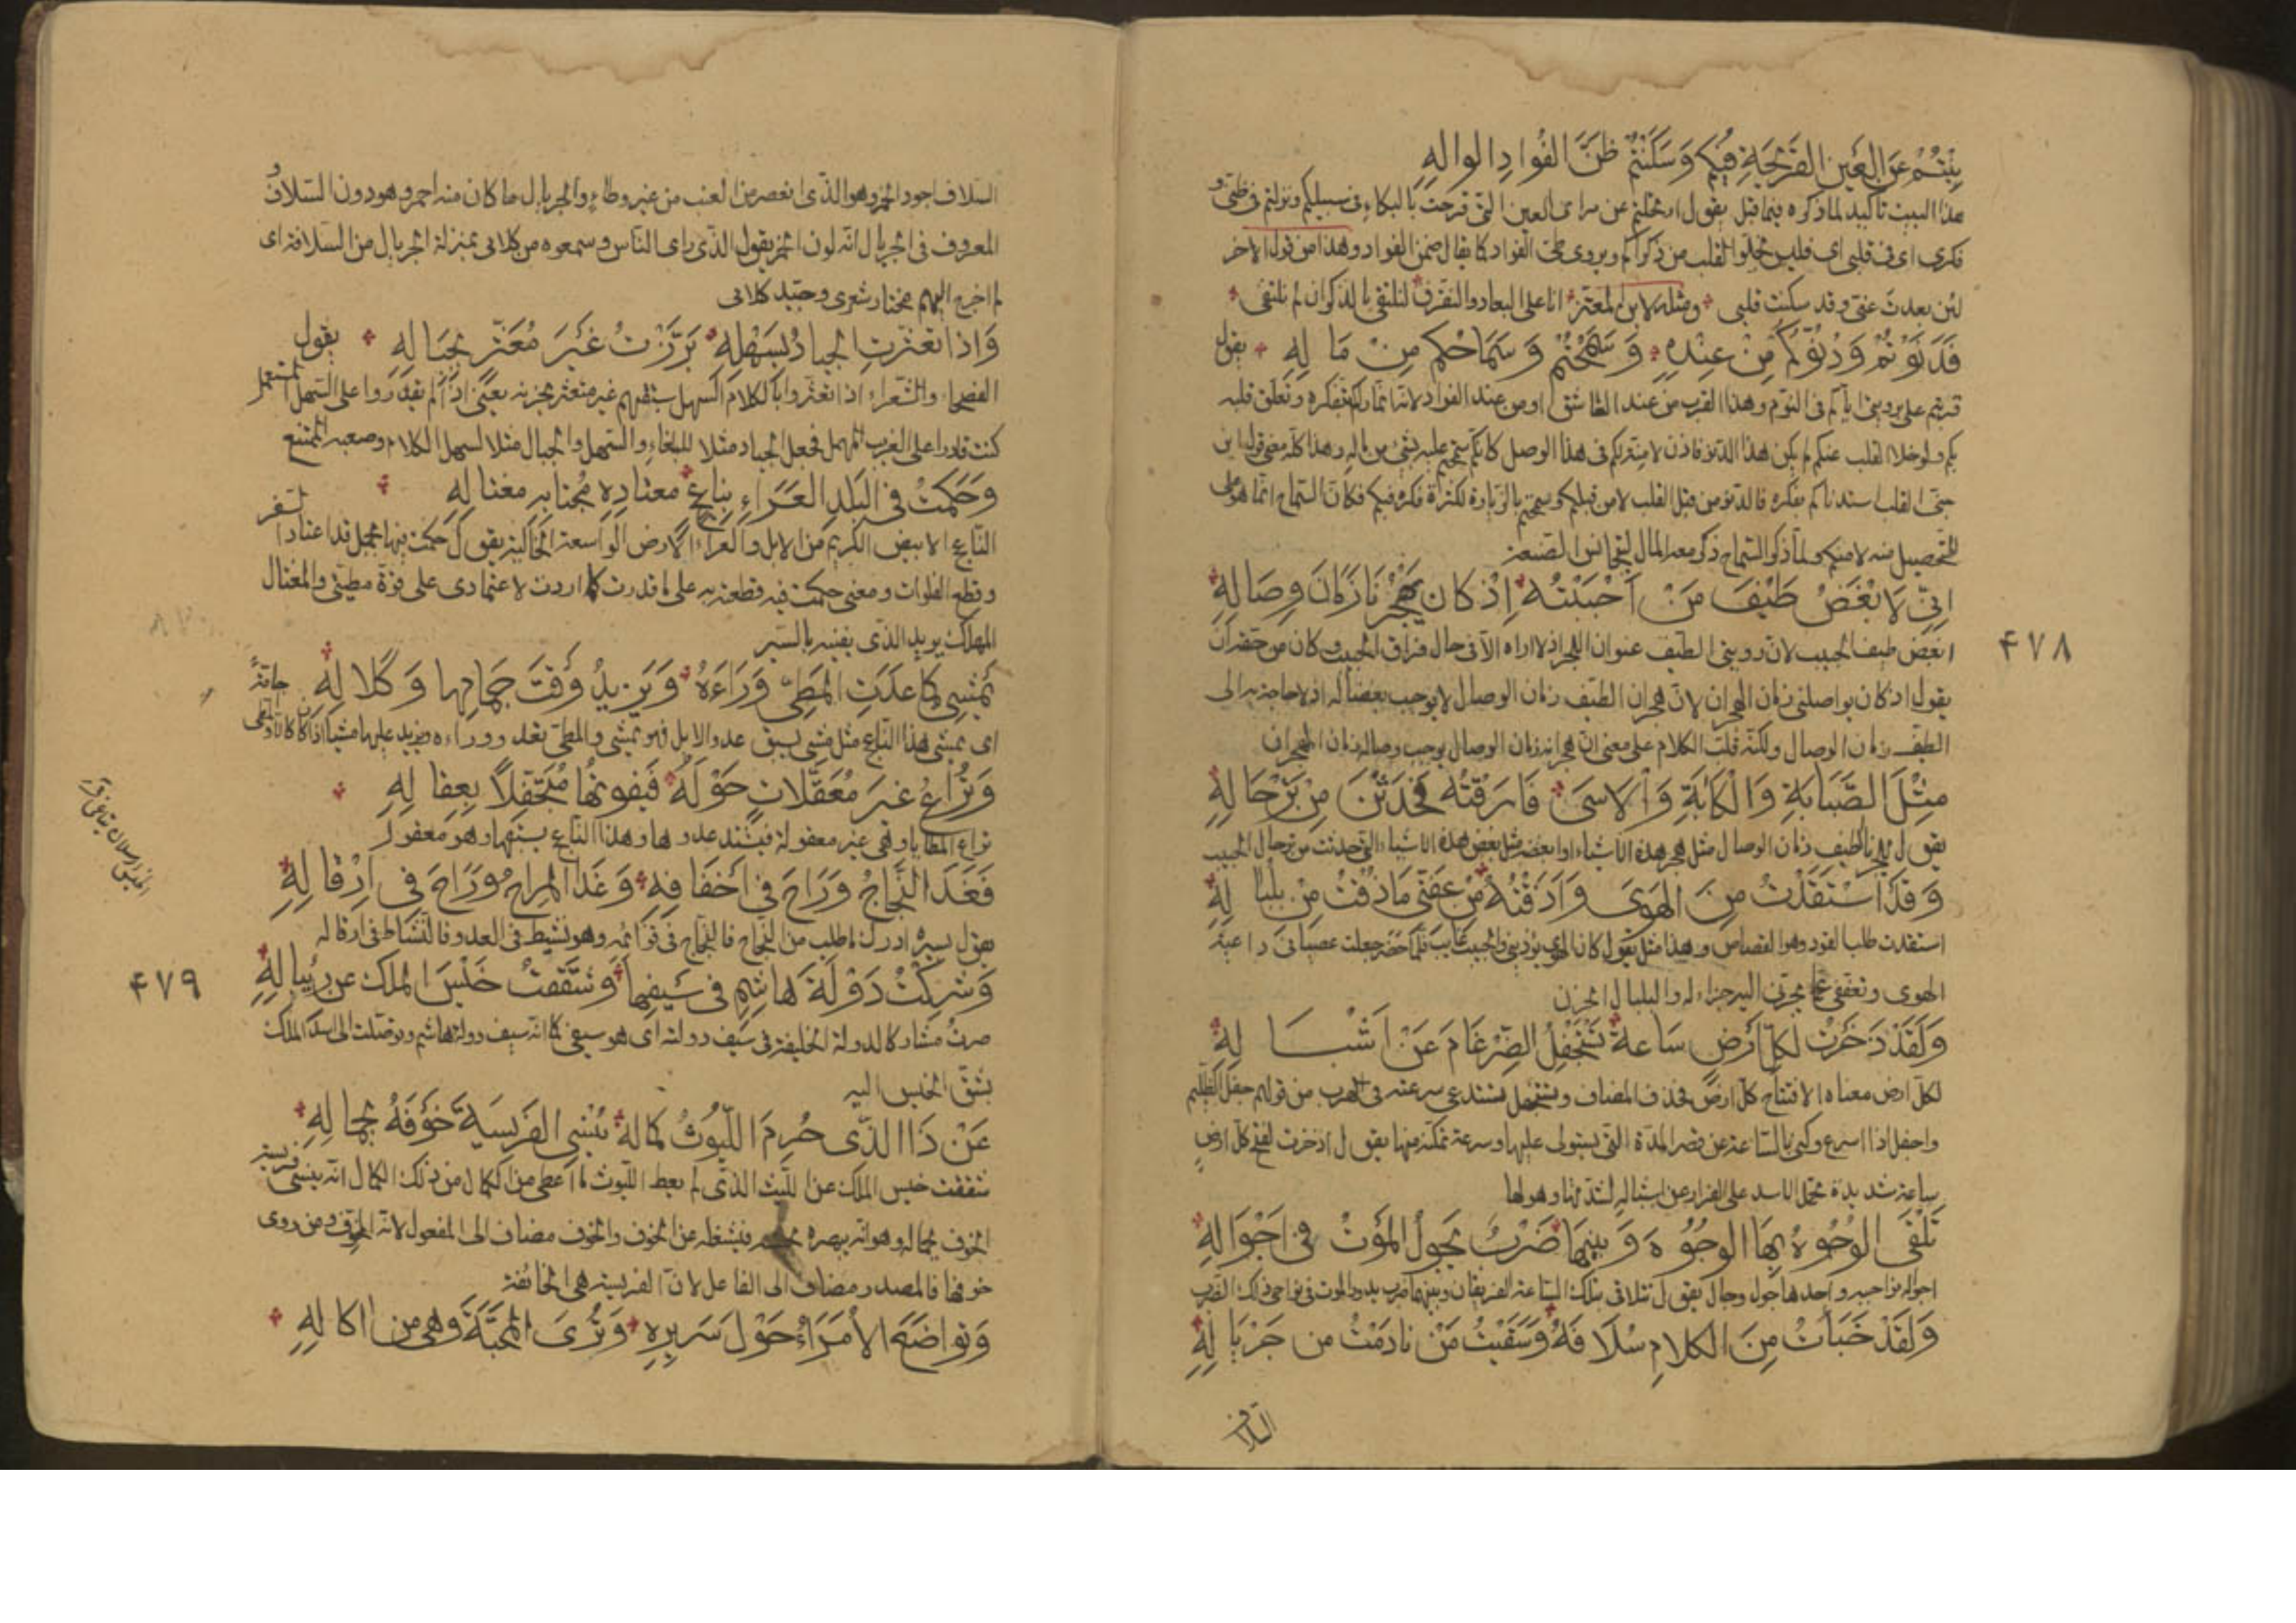 بِنْتُمْ عَنِ العَيْنِ القَرِيْحَةِ فِيكُم وَسَكَنْتُمُ ظَنَّ الفُوادِ الوالِهِ
هذا البيت تاكيد لما ذكره فيما قبل يقول ارتحلتم عن مراى العين التى قرحت بالبكاء فى سبيلكم ونزلتم فى ظنى و
فكرى اى فى قلبى اى فليس يخلوا القلب من ذكراكم ويروى طى الفواد كما يقال ضمن الفواد وهذا من قول الاخر
لئن بعدت عنى وقد سكنت قلبى ومثله لابن المعتز انا على البعاد والتفرق لنلتقى بالذكر ان لم نلتقى
فَدَنَوْتُمُ وَدُنُوُّكُمْ مِنْ عِنْدِهِ وَسَمَحْتُمُ وَسَمَاحُكُم مِنْ مَالِهِ يقول
قربتم على برؤيتى اياكم فى النوم وهذا القرب من عند العاشق او من عند الفواد لانه انما راكم بتفكره وتعلق قلبه
بكم ولو خلا القلب عنكم لم يكن هذا الدنو فاذن لا منة لكم فى هذا الوصل كانكم سمحتم عليه بشئ من ماله وهذا كله معنى قوله ابن
جنى القلب استدناكم بفكره فالدنو من قبل القلب لا من قبلكم وسمحتم بالزيارة لكثرة فكره فيكم فكان السماح انما هو على
التحصيل منه لا منكم ولما ذكر السماح ذكر معه المال لتجانس الصنعة
اِنّى لَاُبْغِضُ طَيْفَ مَنْ اَحْبَبْتُهُ اِذْ كانَ يَهْجُرُنَا زَمَانَ وِصَالِهِ
ابغض طيف الحبيب لان رويتى الطيف عنوان الهجر اذ لا اراه الا فى حال فراق الحبيب وكان من حقه ان
۴۷۸
يقول اذ كان يواصلنى زمان الهجران لان هجران الطيف زمان الوصال لا يوجب بغضا له اذ لا حاجة به الى
الطيف زمان الوصال ولكنه قلب الكلام على معنى ان هجرانه زمان الوصال يوجب وصاله زمان الهجران
مِثْلَ الصَّبَابَةِ وَالْكَآبَةِ وَالْاَسَى فَارَقْتُهُ فَحَدَثْنَ مِنْ تَرْحَالِهِ
يقول يهجرنا الطيف زمان الوصال مثل هجر هذه الاشياء او ابغضه مثل بغض هذه الاشياء التى حدثت من ترحال الحبيب
وَقَدِ اسْتَقَدْتُ مِنَ الهَوَى وَاَذَقْتُهُ مِنْ عِفَّتى مَا ذُقْتُ مِنْ بَلْبالِهِ
استقدت طلبت القود وهو القصاص وهذا مثل يقول كان الهوى يؤذينى والحبيب غايب فلما حضر جعلت عصيانى داعية
الهوى وتعففى عما يجرنى اليه جزاء له والبلبال الحزن
وَلَقَدْ ذَخَرْتُ لِكُلِّ اَرْضٍ سَاعَةً تَسْتَجْفِلُ الضِّرْغَامَ عَنْ اَشْبَالِهِ
لكل ارض معناه الافتتاح كل ارض فحذف المضاف وتستجفل تستدعى سرعته فى الهرب من قولهم جفل الظليم
واجفل اذا اسرع وكنى بالساعة عن قصر المدة التى يستولى عليها وسرعة تمكنه منها يقول اذخرت لفتح كل ارض
ساعة شديدة تحمل الاسد على الفرار عن اشباله لشدتها وهولها
تَلْقَى الوُجُوهُ بِهَا الوُجُوهَ وَبَيْنَهَا ضَرْبٌ يَجُولُ المَوْتُ فى اَجْوَالِهِ
اجواله نواحيه واحدها جول وجال يقول تتلاقى بتلك الساعة الفريقان وبينهما ضرب يدور الموت فى نواحى ذلك الضرب
وَلَقَدْ خَبَأْتُ مِنَ الكَلامِ سُلَافَهُ وَسَقَيْتُ مَنْ نادَمْتُ من جَرْيالِهِ
السلاف
السلاف اجود الخمر وهو الذى انعصر من العنب من غير وطاء والجريال ما كان منه احمر وهو دون السلاف و
المعروف فى الجريال انه لون الخمر يقول الذى راى الناس وسمعوه من كلامى بمنزلة الجريال من السلافة اى
لم اخرج اليهم مختار شعرى وجيد كلامى
وَاِذا تَعَثَّرَتِ الجِيادُ بِسَهْلِهِ بَرَّزْتُ غَيْرَ مُعَثَّرٍ بِجِبالِهِ يقول
الفصحاء والشعراء اذا تعثروا بالكلام السهل سبقتهم غير متعثر بحزنه يعنى اذا لم يقدروا على السهل المستعمل
كنت قادرا على الغريب المهمل فجعل الجياد مثلا للبلغاء والسهل والجبال مثلا لسهل الكلام وصعبه الممتنع
وَحَكَمْتُ فى البَلَدِ العَرَاءِ بِناعِجٍ مُعْتادِهِ مُجْتابِهِ مُغْتالِهِ
الناعج الابيض الكريم من الابل والعراء الارض الواسعة الخالية يقول حكمت فيها بجمل قد اعتاد السفر
وقطع الفلوات ومعنى حكمت فيه قطعته به على ما قدرت كما اردت لاعتمادى على قوة مطيتى والمغتال
المهلك يريد الذى يفنيه بالسير
يَمْشِى كَما عَدَتِ المَطِىُّ وَرَاءَهُ وَيَزِيدُ وَقْتَ جَمَامِها وَكَلالِهِ
اى يمشى هذا الناعج مثل مشى يسبق عدو الابل فهو يمشى والمطى تعدو وراءه ويزيد عليها مشيا اذا كا كالا وهى جامة
وَتُرَاعُ غَيْرَ مُعَقَّلاتٍ حَوْلَهُ فَيَفوتُها مُتَجَفِّلاً بِعِقالِهِ
تراع المطايا وهى غير معقولة فيشتد عدوها وهذا الناعج يسبقها وهو معقول
فَغَدَا النَّجَاحُ وَرَاحَ فى اَخْفَافِهِ وَغَدَا المِراحُ وَرَاحَ فى اِرْقالِهِ
يقول بسيره ادرك ما طلب من النجاح فالنجاح فى قوائمه وهو نشيط فى العدو فالنشاط فى ارقاله
وَشَرِكْتُ دَوْلَةَ هَاشِمٍ فى سَيْفِها وَشَقَقْتُ خِيسَ المُلْكِ عَنْ رِئْبالِهِ
۴۷۹
صرت مشاركا لدولة الخليفة فى سيف دولته اى هو سيفى كما انه سيف دولة هاشم وتوصلت الى اسد الملك
بشق الخيس اليه
عَنْ ذَا الذى حُرِمَ اللُّيُوثُ كَمالَهُ يُنْسِى الفَرِيسَةَ خَوْفَهُ بِجَمالِهِ
شققت خيس الملك عن الليث الذى لم يعط الليوث ما اعطى من الكمال ومن ذلك الكمال انه ينسى فريسته
الخوف بجماله وهو انه بهره فيشغله عن الخوف والخوف مضاف الى المفعول لانه المخوف ومن روى
خوفها فالمصدر مضاف الى الفاعل لان الفريسة هى الخائفة
وَتَواضَعُ الاُمَرَاءُ حَوْلَ سَرِيرِهِ وَتُرَى المَحَبَّةُ وَهْىَ مِن اكالِهِ